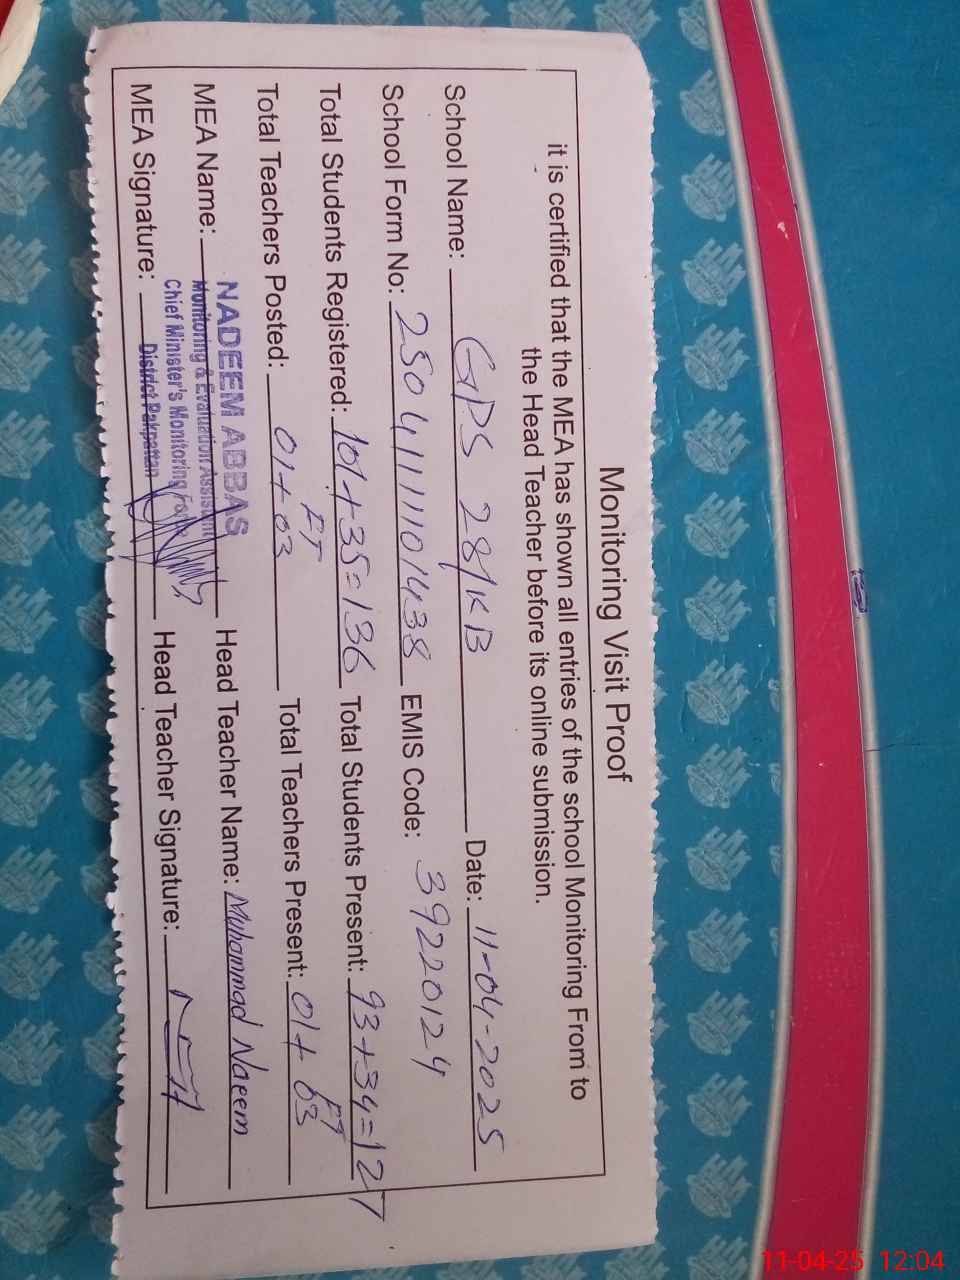 Monitoring Visit Proof
it is certified that the MEA has shown all entries of the school Monitoring From to
the Head Teacher before its online submission.
School Name: GPS 28/KB Date: 11-04-2025
School Form No: 2504111101438 EMIS Code: 39220124
Total Students Registered: 101+35=136 Total Students Present: 93+34=127
Total Teachers Posted: 01+03 PT Total Teachers Present: 01+03 PT
MEA Name: NADEEM ABBAS Head Teacher Name: Muhammad Naeem
Monitoring & Evaluation Assistant
Chief Minister's Monitoring Force
MEA Signature: District Pakpattan Head Teacher Signature:
11-04-25 12:04